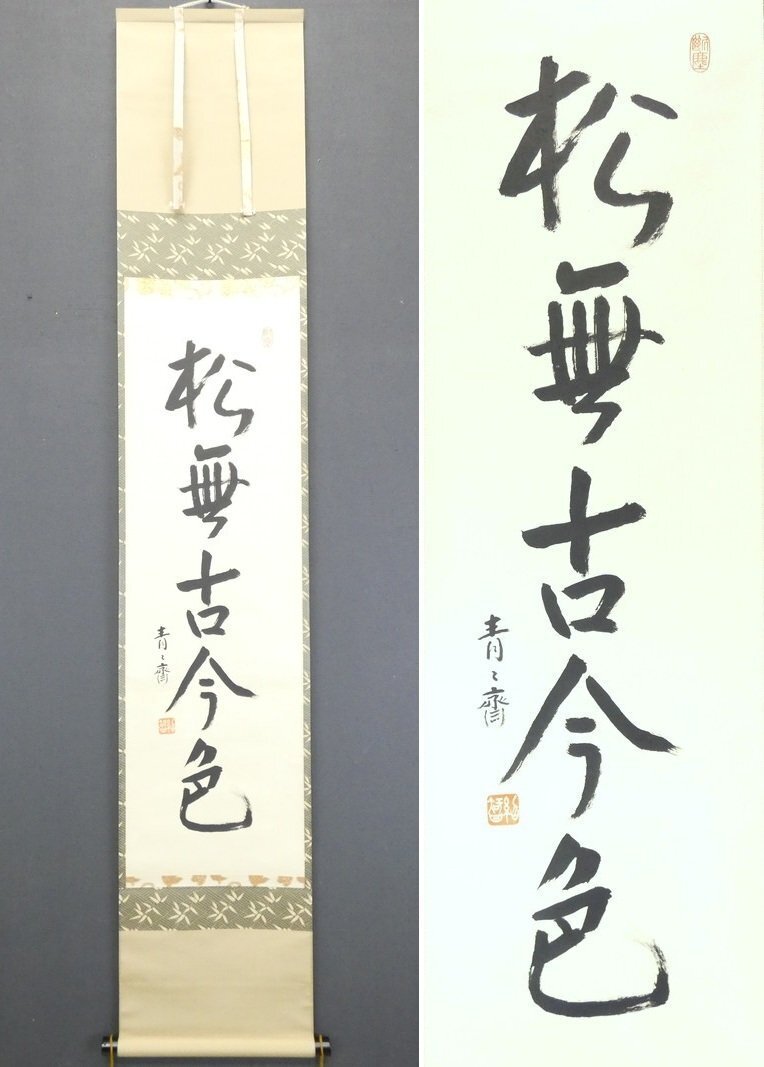 松無古今色
青々齋
松無古今色
青々齋